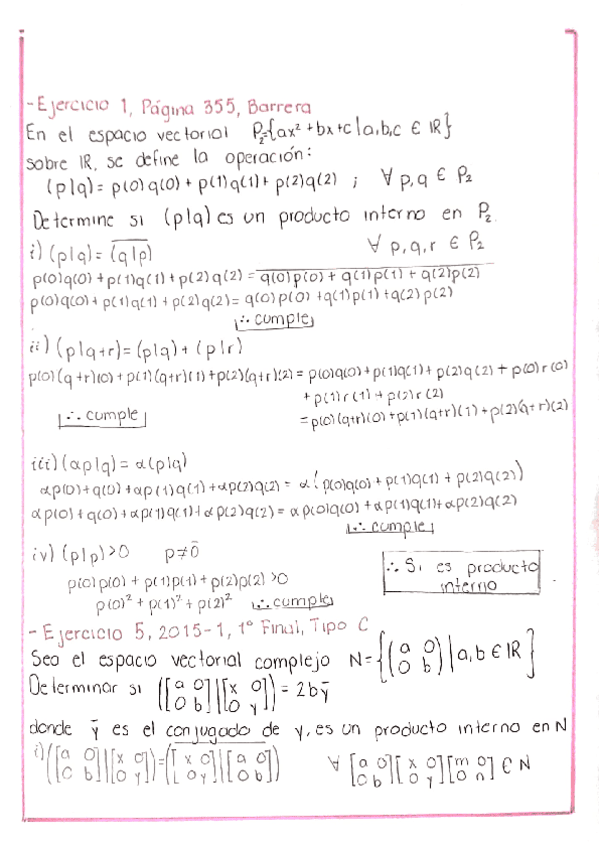 - Ejercicio 1, Página 355, Barrera
En el espacio vectorial P₂={ax²+bx+c|a,b,c ∈ IR}
sobre IR, se define la operación:
(p|q)= p(0)q(0)+ p(1)q(1)+ p(2)q(2) ; ∀ p,q ∈ P₂
Determine si (p|q) es un producto interno en P₂.
i) (p|q)= \overline{(q|p)} ∀ p,q,r ∈ P₂
p(0)q(0)+p(1)q(1)+p(2)q(2)= \overline{q(0)p(0)+q(1)p(1)+q(2)p(2)}
p(0)q(0)+p(1)q(1)+p(2)q(2)= q(0)p(0)+q(1)p(1)+q(2)p(2)
∴ cumple
ii) (p|q+r)=(p|q)+(p|r)
p(0)(q+r)(0)+p(1)(q+r)(1)+p(2)(q+r)(2)= p(0)q(0)+p(1)q(1)+p(2)q(2)+p(0)r(0)
+p(1)r(1)+p(2)r(2)
=p(0)(q+r)(0)+p(1)(q+r)(1)+p(2)(q+r)(2)
∴ cumple
iii) (αp|q)= α(p|q)
αp(0)+q(0)+αp(1)q(1)+αp(2)q(2)= α(p(0)q(0)+p(1)q(1)+p(2)q(2))
αp(0)+q(0)+αp(1)q(1)+αp(2)q(2)= αp(0)q(0)+αp(1)q(1)+αp(2)q(2)
∴ cumple
iv) (p|p)>0 p≠0̄
p(0)p(0)+p(1)p(1)+p(2)p(2)>0
p(0)²+p(1)²+p(2)² ∴ cumple
∴ Si es producto
interno
- Ejercicio 5, 2015-1, 1° Final, Tipo C
Sea el espacio vectorial complejo N={(a 0 0 b)|a,b ∈ IR}
Determinar si ([a 0 0 b]|[x 0 0 y])= 2bȳ
donde ȳ es el conjugado de y, es un producto interno en N
i) ([a 0 0 b]|[x 0 0 y])=\overline{([x 0 0 y]|[a 0 0 b])} ∀ [a 0 0 b][x 0 0 y][m 0 0 n] ∈ N